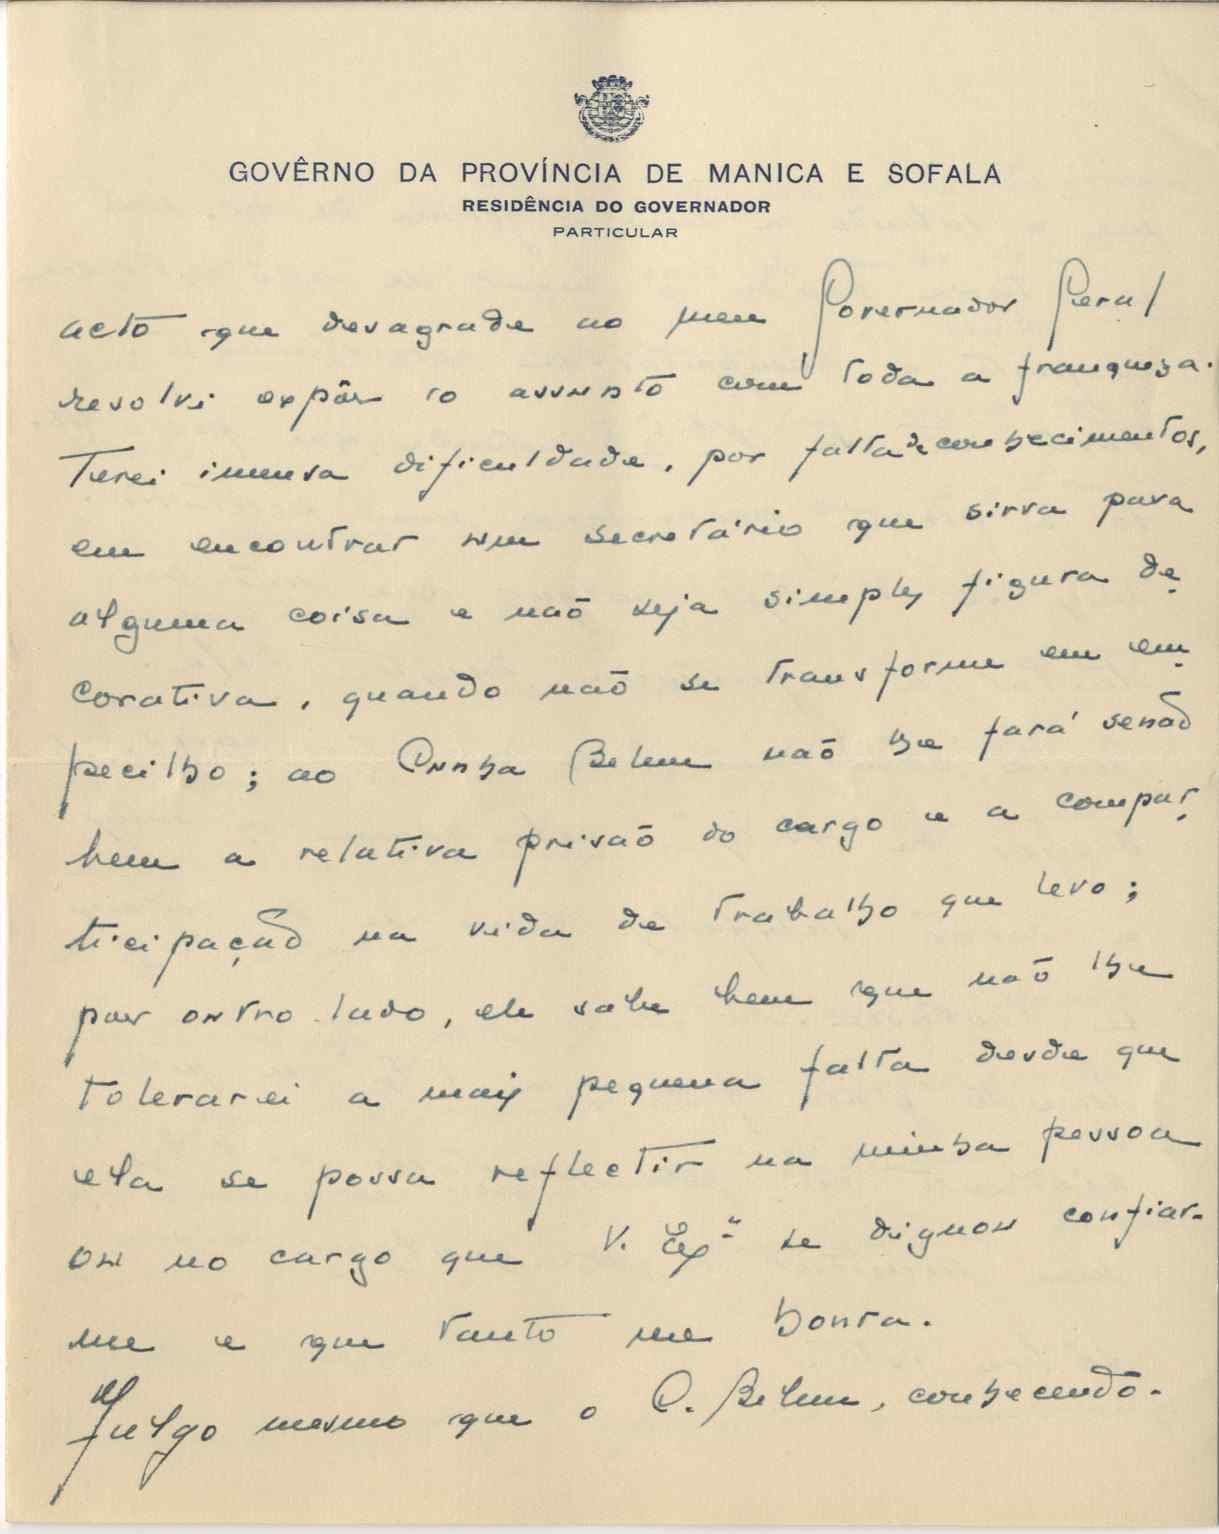 GOVÊRNO DA PROVÍNCIA DE MANICA E SOFALA
RESIDÊNCIA DO GOVERNADOR
PARTICULAR
acto que desagrade ao meu Governador Geral
resolvi expôr o assunto com toda a franqueza.
Terei imensa dificuldade, por falta de conhecimentos,
em encontrar um secretário que sirva para
alguma coisa e não seja simples figura de
corativa, quando não se transforme em em
pecilho; ao Cunha Belem não lhe fará senão
bem a relativa prisão do cargo e a compar
ticipação na vida de trabalho que levo;
por outro lado, ele sabe bem que não lhe
tolerarei a mais pequena falta desde que
ela se possa reflectir na minha pessoa
ou no cargo que V. Exª se dignou confiar-
me e que tanto me honra.
Julgo mesmo que o C. Belem, conhecendo-